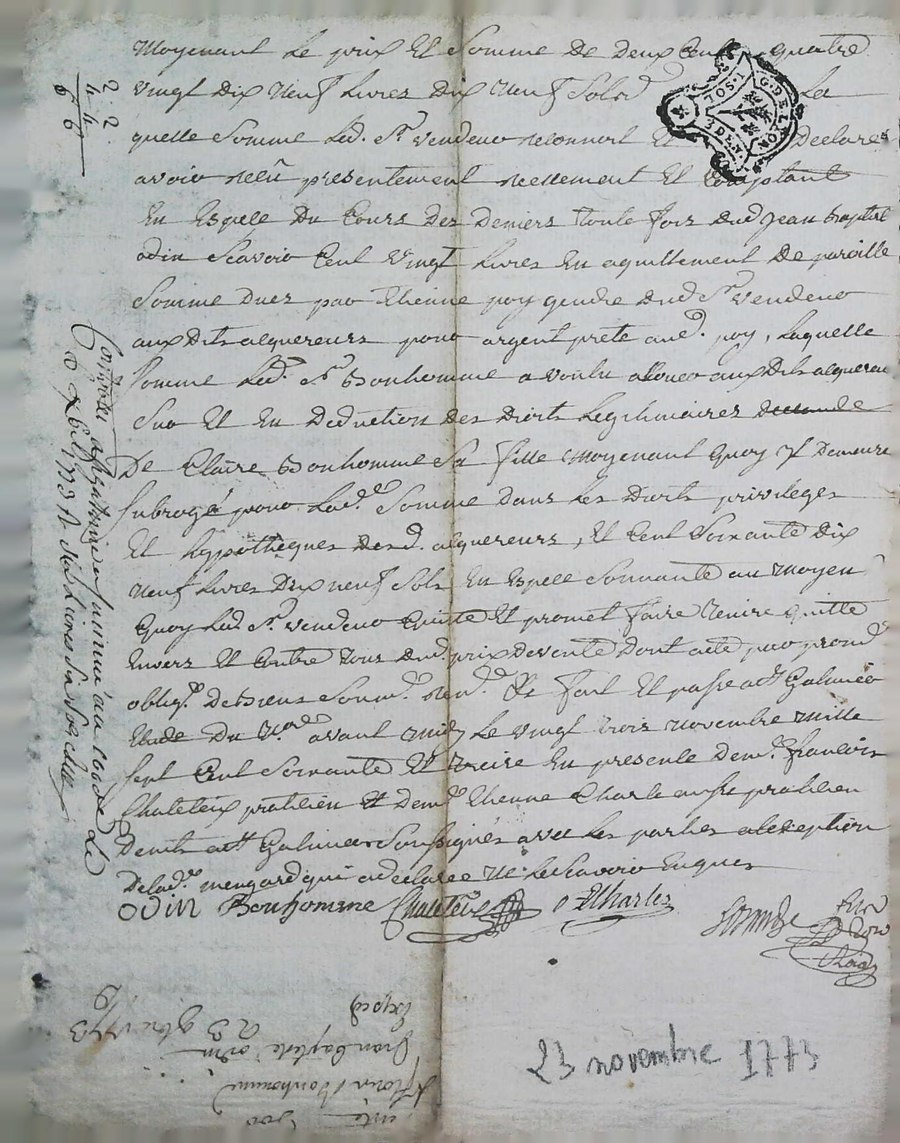 moyenant le prix et somme de deux Cent quatre
vingt dix neuf Livres dix neuf Sols La
G. DE LYON
1. SOL
quelle somme Led. Sr. vendeur reconnoit Et Declare
avoir reçû presentement reellement Et Comptant
En Espece du Cours des deniers toute fois dud jean baptist
odin Scavoir Cent vingt Livres En aquittement de pareille
Somme dues par Etienne poy gendre dud Sr. vendeur
aux dits aquereurs pour argent prete aud. poy, Laquelle
somme Led. Sr. Bonhomme a voulu allouer aux dits aquereurs
Sur Et En deduction des droits Legitimaires
De Claire Bonhomme Sa fille moyenant quoy yl demeure
subrogé pour Lad.e Somme dans Les droits privileges
Et hyppothèques desd. aquereurs, Et Cent Soixante dix
neuf Livres dix neuf Sols En Espece Sonnante au moyen
quoy Led. Sr. vendeur quitte Et promet faire tenire quitte
Envers Et Contre tous dud. prix de vente dont acte par prom.
oblig. de biens Soum. ren. &e fait Et passé
Etude du avant midy Le vingt trois novembre mille
sept Cent Soixante Et treize En presence de françois
Chateleux praticien Et de Etienne Charle aussi praticien
Soussignés avec Les parties a l'exeption
De lad.e mengard qui a declaree ne Le Scavoir Enquis
ODIN Bonhomme Chateleux E Charles
2. 2
4. 4
6
Controllé
1773
23 novembre 1773
23 9bre 1773
Exped
Jean baptiste odin
Bonhomme
vente
300